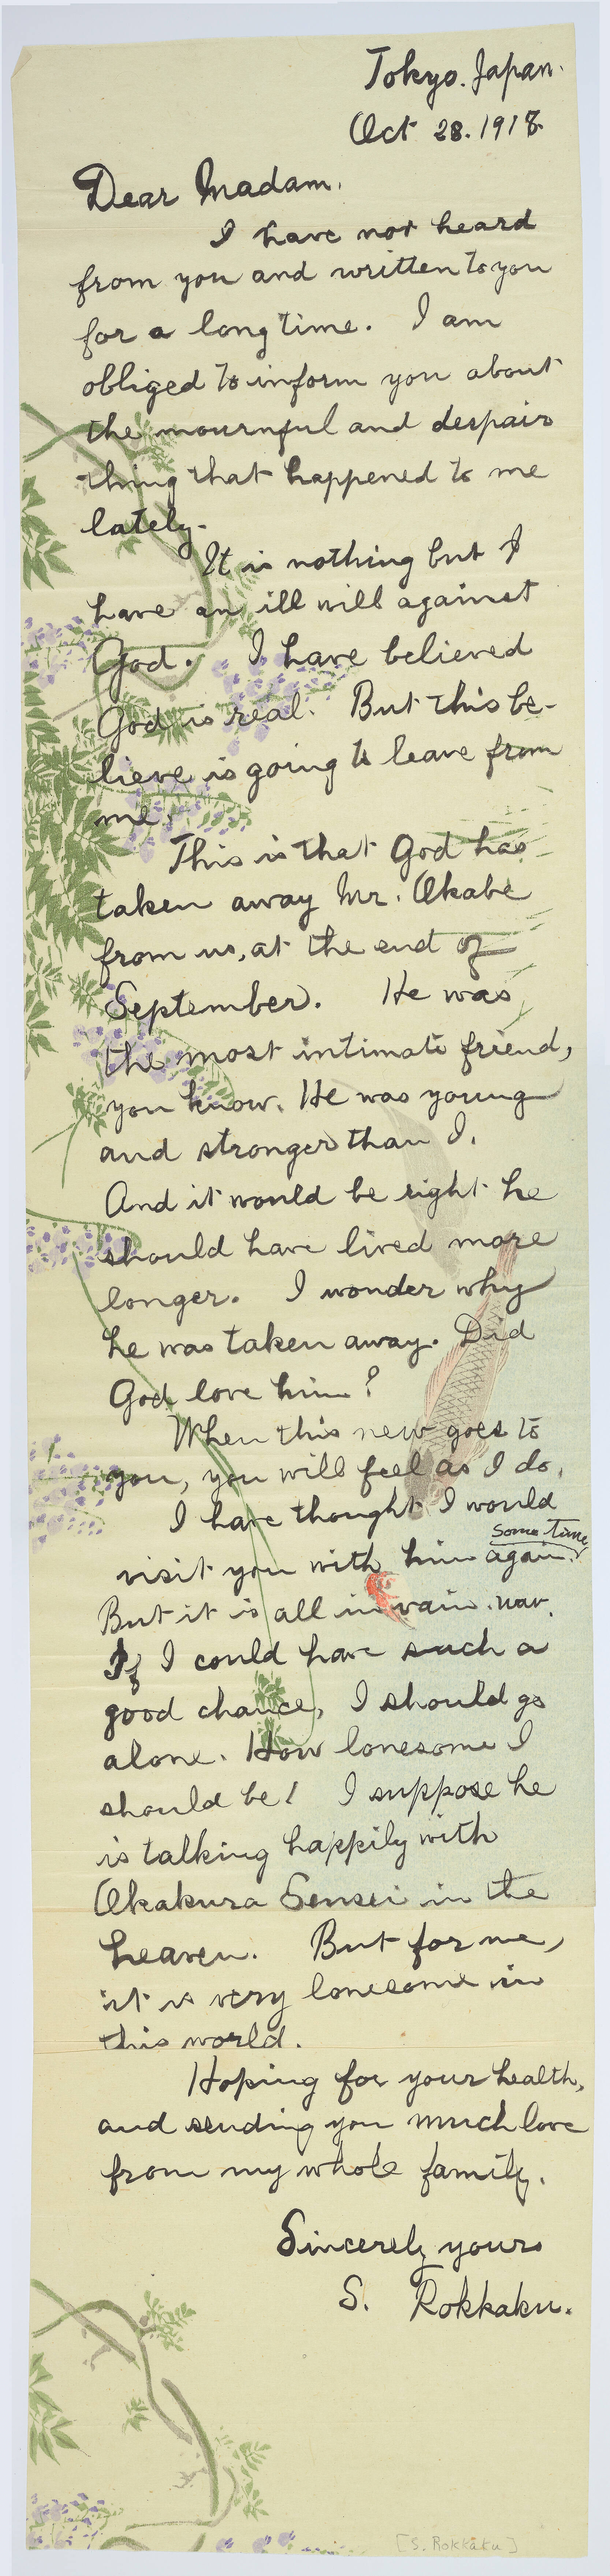 Tokyo. Japan.
Oct 28. 1918.
Dear Madam.
I have not heard
from you and written to you
for a long time. I am
obliged to inform you about
the mournful and despair
thing that happened to me
lately.
It is nothing but I
have an ill will against
God. I have believed
God is real. But this be-
lieve is going to leave from
me.
This is that God has
taken away Mr. Okabe
from us, at the end of
September. He was
the most intimate friend,
you know. He was young
and stronger than I.
And it would be right he
should have lived more
longer. I wonder why
he was taken away. Did
God love him?
When this new goes to
you, you will feel as I do.
I have thought I would
some time
visit you with him again.
But it is all in vain.
If I could have such a
good chance, I should go
alone. How lonesome I
should be! I suppose he
is talking happily with
Okakura Sensei in the
heaven. But for me,
it is very lonesome in
this world.
Hoping for your health,
and sending you much love
from my whole family.
Sincerely yours
S. Rokkaku.
[S. Rokkaku]